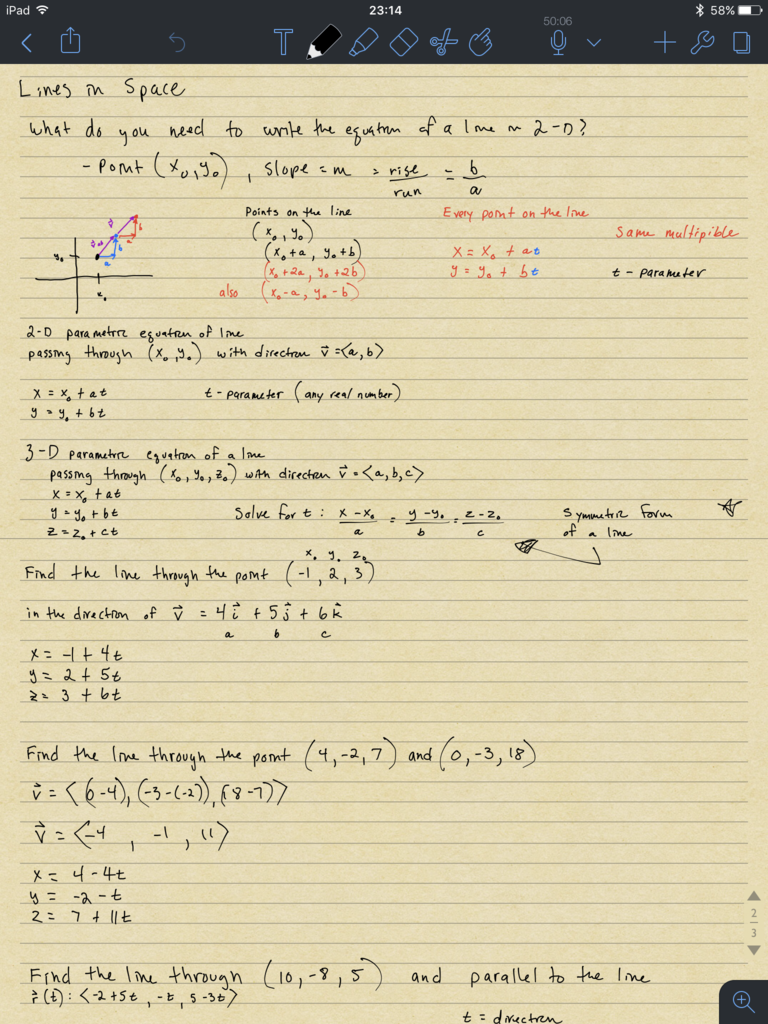 iPad 23:14 58%
50:06
T
Lines in Space
What do you need to write the equation of a line in 2-D?
- Point (x₀, y₀), slope = m = rise/run = b/a
Points on the line Every point on the line
(x₀, y₀) Same multipible
(x₀+a, y₀+b) x = x₀ + at
(x₀+2a, y₀+2b) y = y₀ + bt t - parameter
also (x₀-a, y₀-b)
y₀ x₀ a b a b v⃗
2-D parametric equation of line
passing through (x₀, y₀) with direction v⃗ = <a, b>
x = x₀ + at t - parameter (any real number)
y = y₀ + bt
3-D parametric equation of a line
passing through (x₀, y₀, z₀) with direction v⃗ = <a, b, c>
x = x₀ + at
y = y₀ + bt Solve for t : x-x₀/a = y-y₀/b = z-z₀/c Symmetric form
z = z₀ + ct of a line
x₀ y₀ z₀
Find the line through the point (-1, 2, 3)
in the direction of v⃗ = 4i⃗ + 5j⃗ + 6k⃗
a b c
x = -1 + 4t
y = 2 + 5t
z = 3 + 6t
Find the line through the point (4, -2, 7) and (0, -3, 18)
v⃗ = <(0-4), (-3-(-2)), (18-7)>
v⃗ = <-4, -1, 11>
x = 4 - 4t
y = -2 - t
z = 7 + 11t
2
3
Find the line through (10, -8, 5) and parallel to the line
r⃗(t): <-2+5t, -t, 5-3t>
t = direction